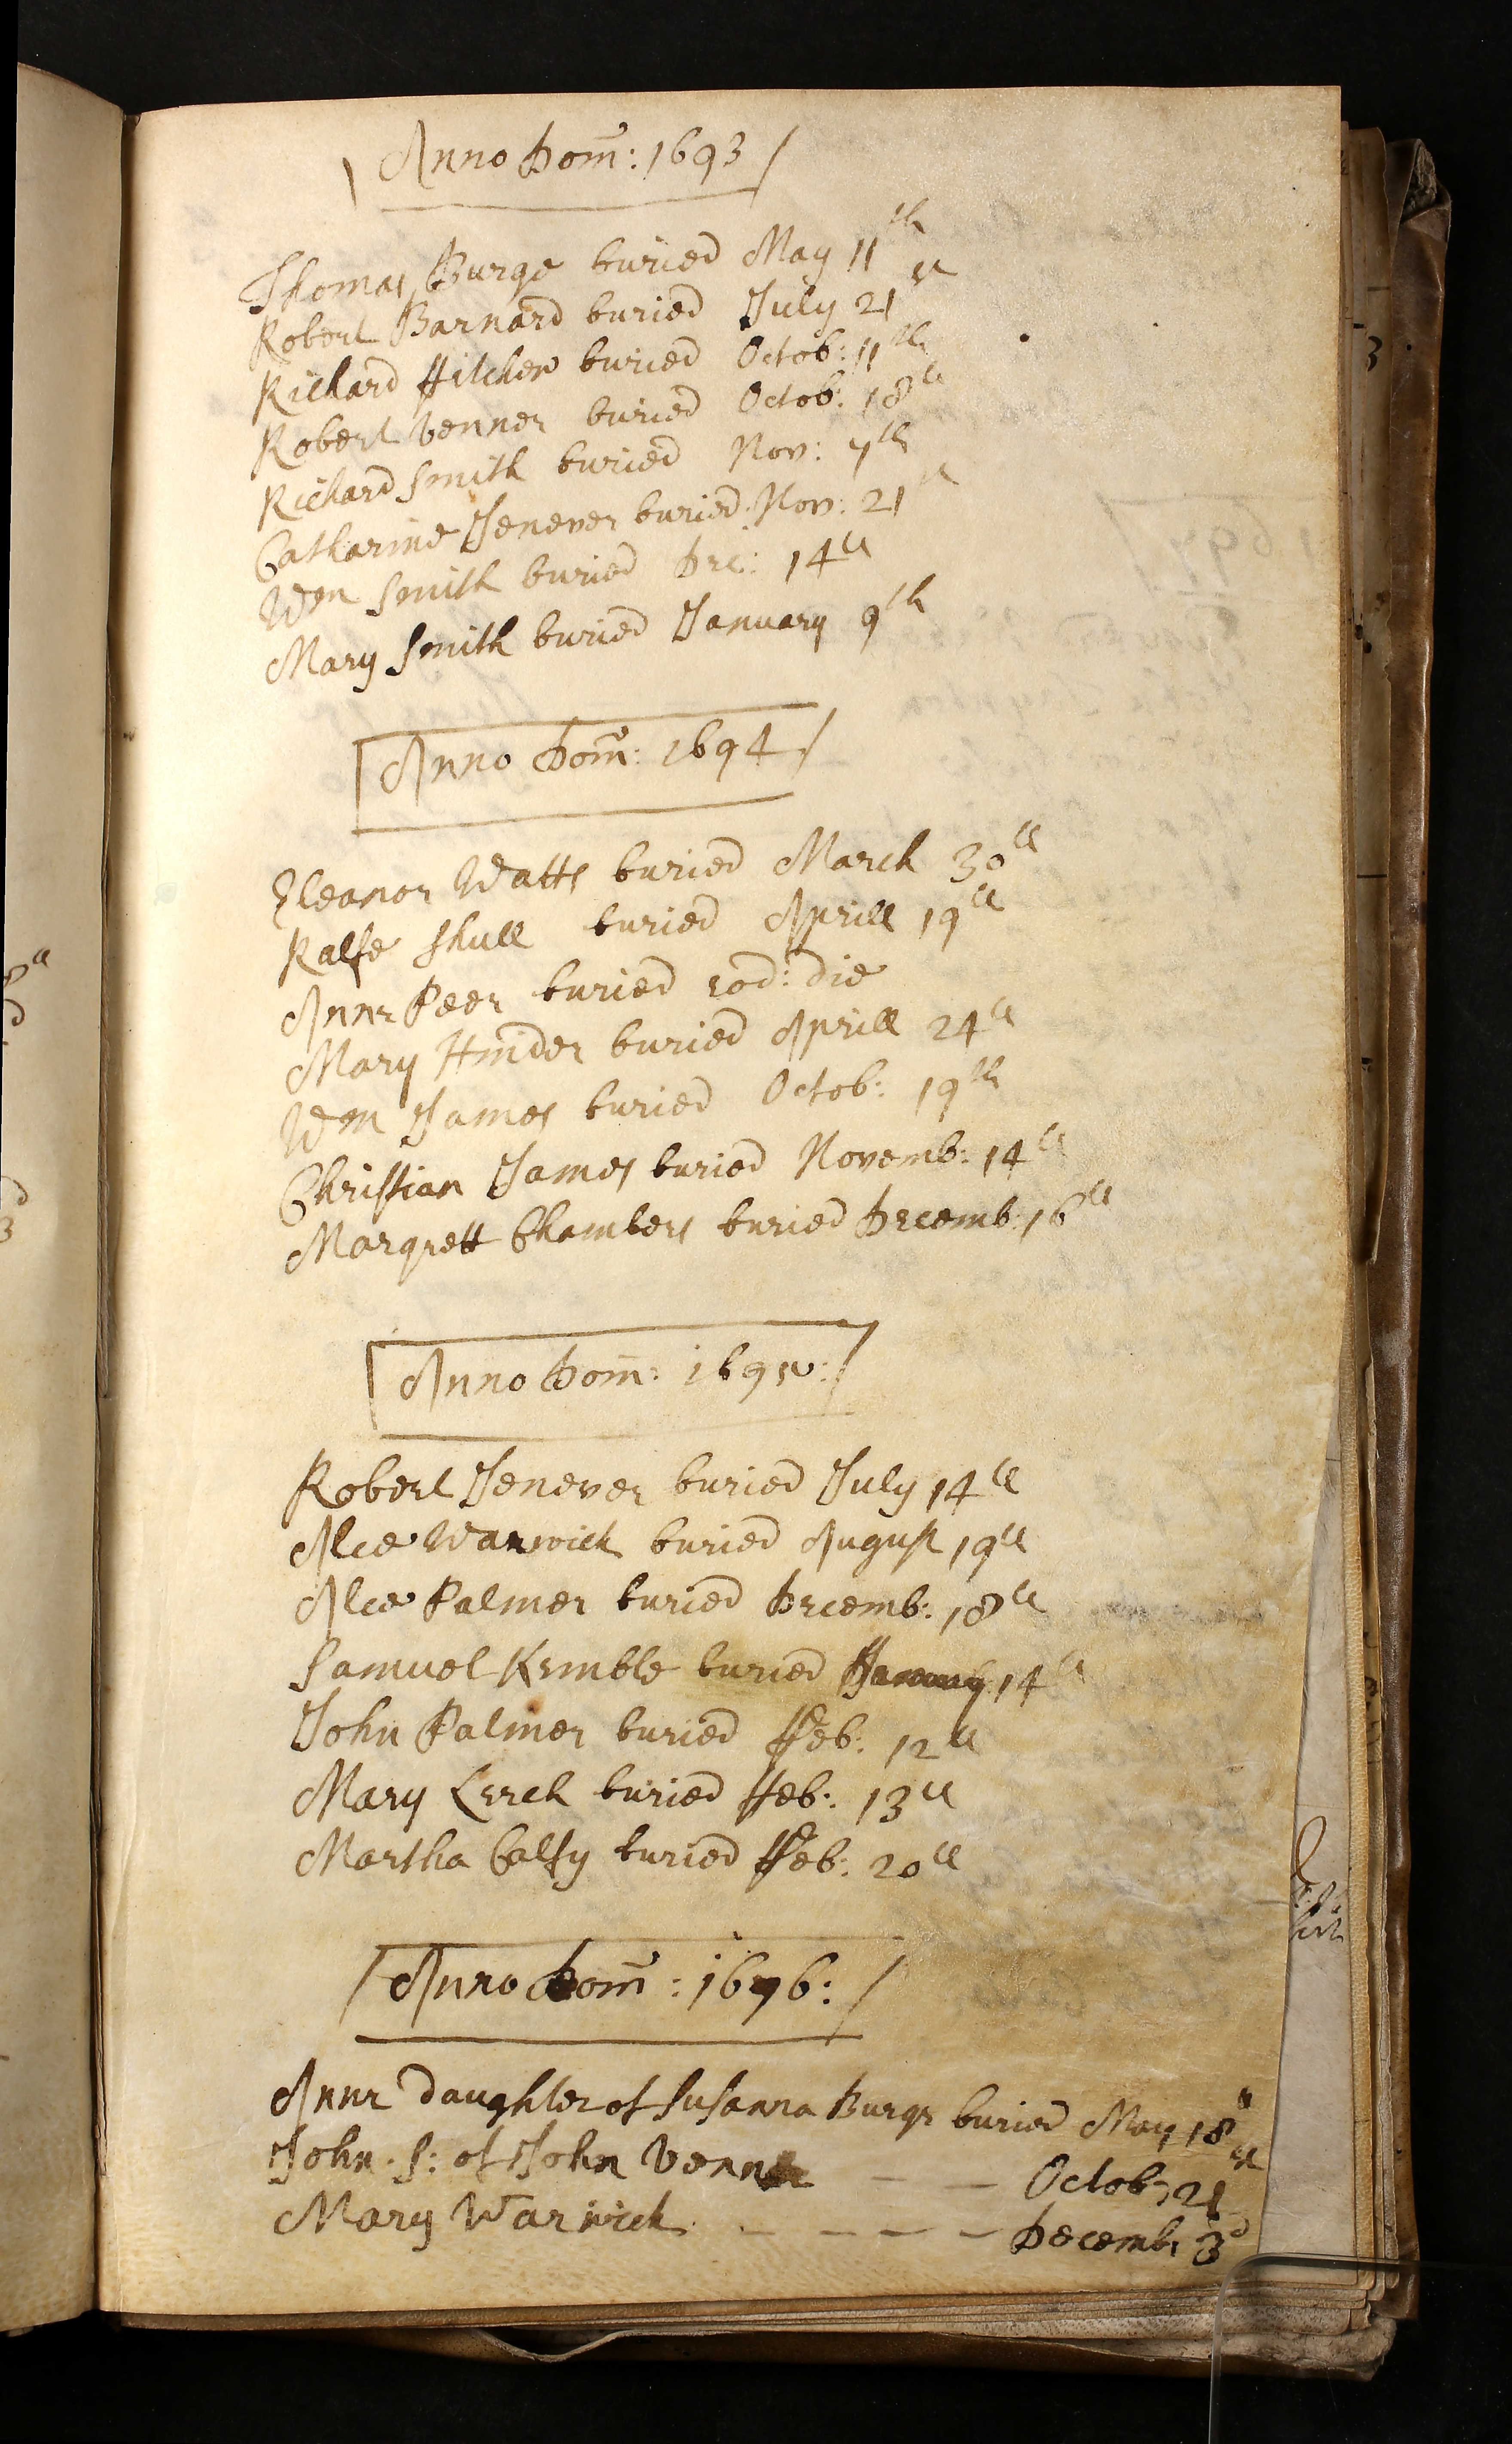 Anno Dom̄: 1693
Thomas Burge buried May 11th
Robert Barnard buried July 21st
Richard Hitcher buried Octob: 11th
Robert Venner buried Octob: 18th
Richard Smith buried Nov: 7th
Catharine Jenever buried Nov: 21st
Wm Smith buried Dec: 14th
Mary Smith buried January 9th
Anno Dom̄: 1694
Eleanor Watts buried March 30th
Ralfe Shull buried Aprill 19th
Anne Peer buried eod: die
Mary Hinder buried Aprill 24th
Wm James buried Octob: 19th
Christian James buried Novemb: 14th
Margrett Chambers buried Decemb: 16th
Anno Dom̄: 1695:
Robert Jenever buried July 14th
Alce Warwick buried August 19th
Alce Palmer buried Decemb: 18th
Samuel Kemble buried January 14th
John Palmer buried ffeb: 12th
Mary Leech buried ffeb: 13th
Martha Calfy buried ffeb: 20th
Anno Dom̄: 1696:
Anne daughter of Susanna Burge buried May 18th
John S: of John Venner Octob: 21st
Mary Warwick Decemb: 3d